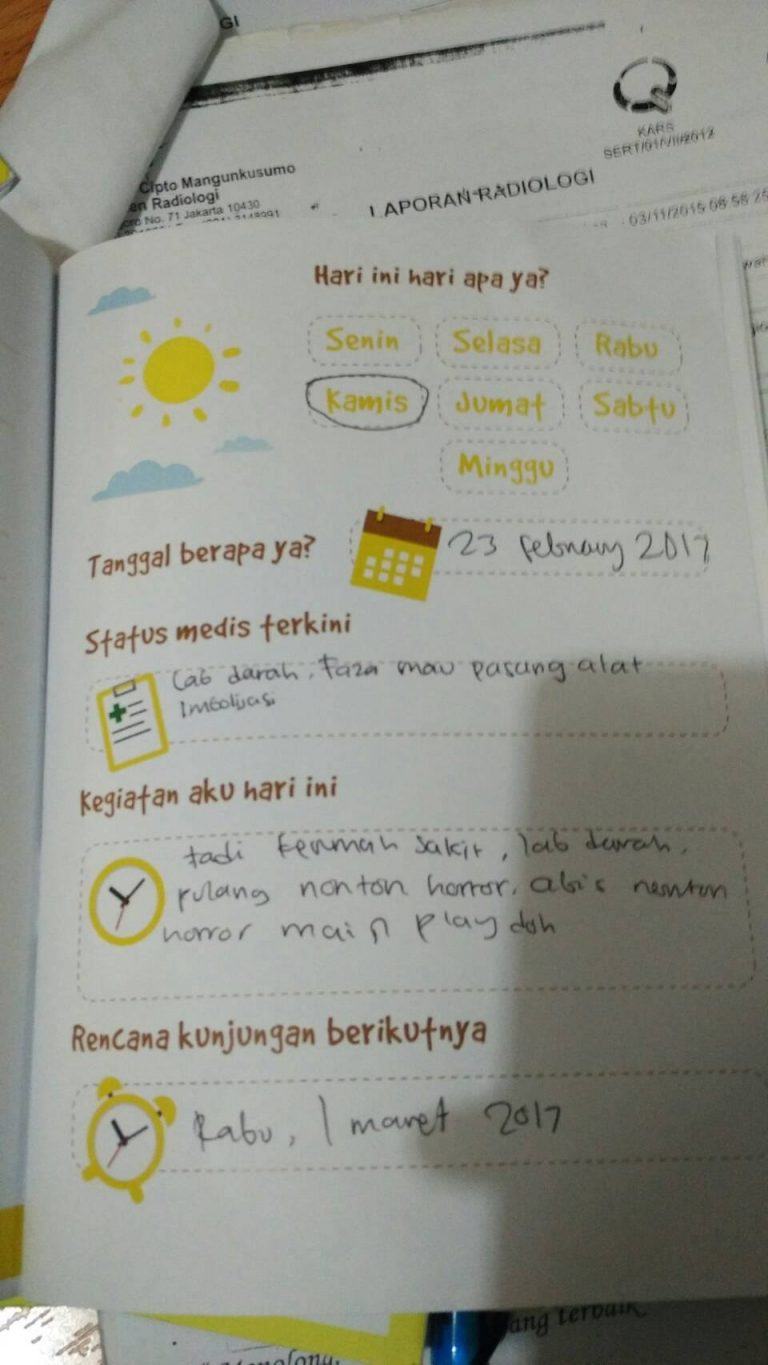 GI
KARS
Cipto Mangunkusumo
en Radiologi
No. 71 Jakarta 10430
LAPORAN RADIOLOGI
03/11/2015 08 58 25
Hari ini hari apa ya?
Senin Selasa Rabu
Kamis Jumat Sabtu
Minggu
Tanggal berapa ya? 23 February 2017
Status medis terkini
Lab darah, Faza mau pasang alat
Imbolijasi
Kegiatan aku hari ini
tadi kerumah sakit, lab darah,
pulang nonton horror, abis nonton
horror main play doh
Rencana kunjungan berikutnya
Rabu, 1 maret 2017
ang terbaik